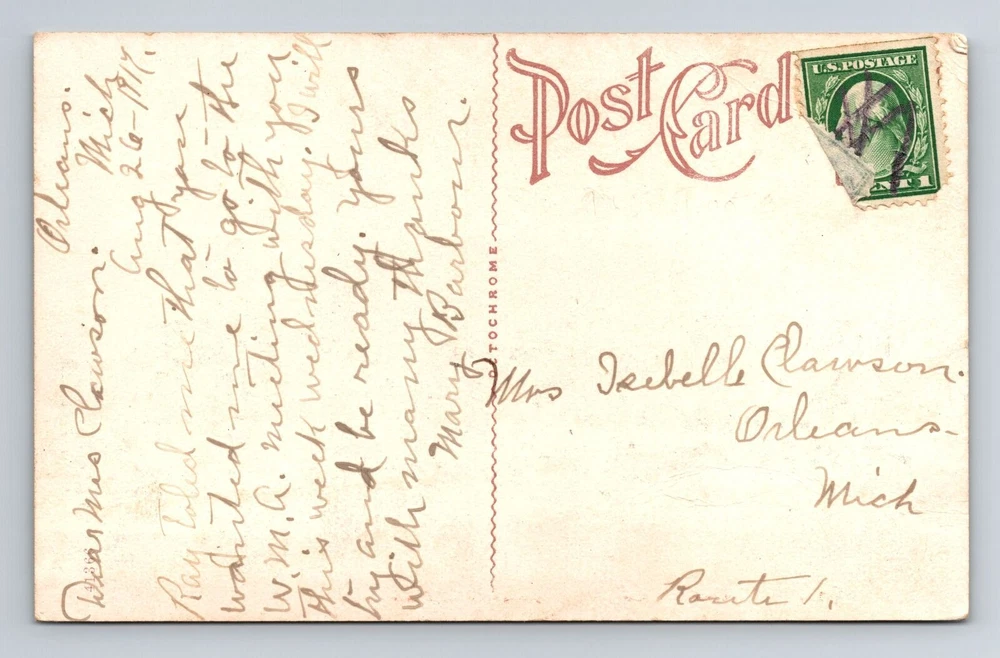 Orleans.
Mich
Aug 26-1917.
Dear Mrs Clawson.
Ray toled me that you
wanted me to go to the
W. M. A. meeting with you
this week wednesday. I will
try and be ready. yours
with many thanks
Mary Barbour.
Post Card
U.S. POSTAGE
1
OCTOCHROME
Mrs Isebelle Clawson.
Orleans-
Mich
Route 1.